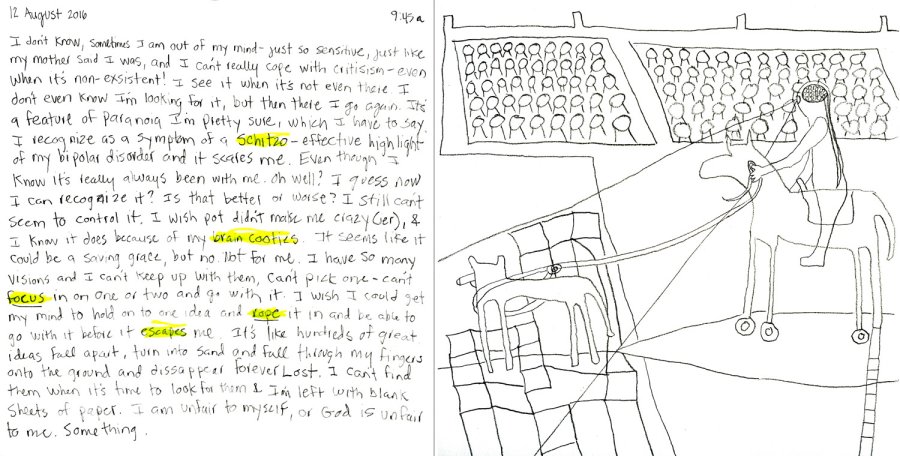 12 August 2016
9:45a
I don't know, sometimes I am out of my mind- just so sensitive, just like
my mother said I was, and I can't really cope with critisism - even
when it's non-exsistent! I see it when it's not even there I
don't even know I'm looking for it, but then there I go again. It's
a feature of paranoia I'm pretty sure, which I have to say.
I recognize as a symptom of a schitzo-effective highlight
of my bipolar disorder and it scares me. Even though I
know it's really always been with me. Oh well? I guess now
I can recognize it? Is that better or worse? I still can't
seem to control it. I wish pot didn't make me crazy(ier), &
I know it does because of my brain cooties. It seems like it
could be a saving grace, but no. Not for me. I have so many
visions and I can't keep up with them, can't pick one - can't
focus in on one or two and go with it. I wish I could get
my mind to hold on to one idea and rope it in and be able to
go with it before it escapes me. It's like hundreds of great
ideas fall apart, turn into sand and fall through my fingers
onto the ground and dissappear forever Lost. I can't find
them when it's time to look for them & I'm left with blank
sheets of paper. I am unfair to myself, or God is unfair
to me. Something.